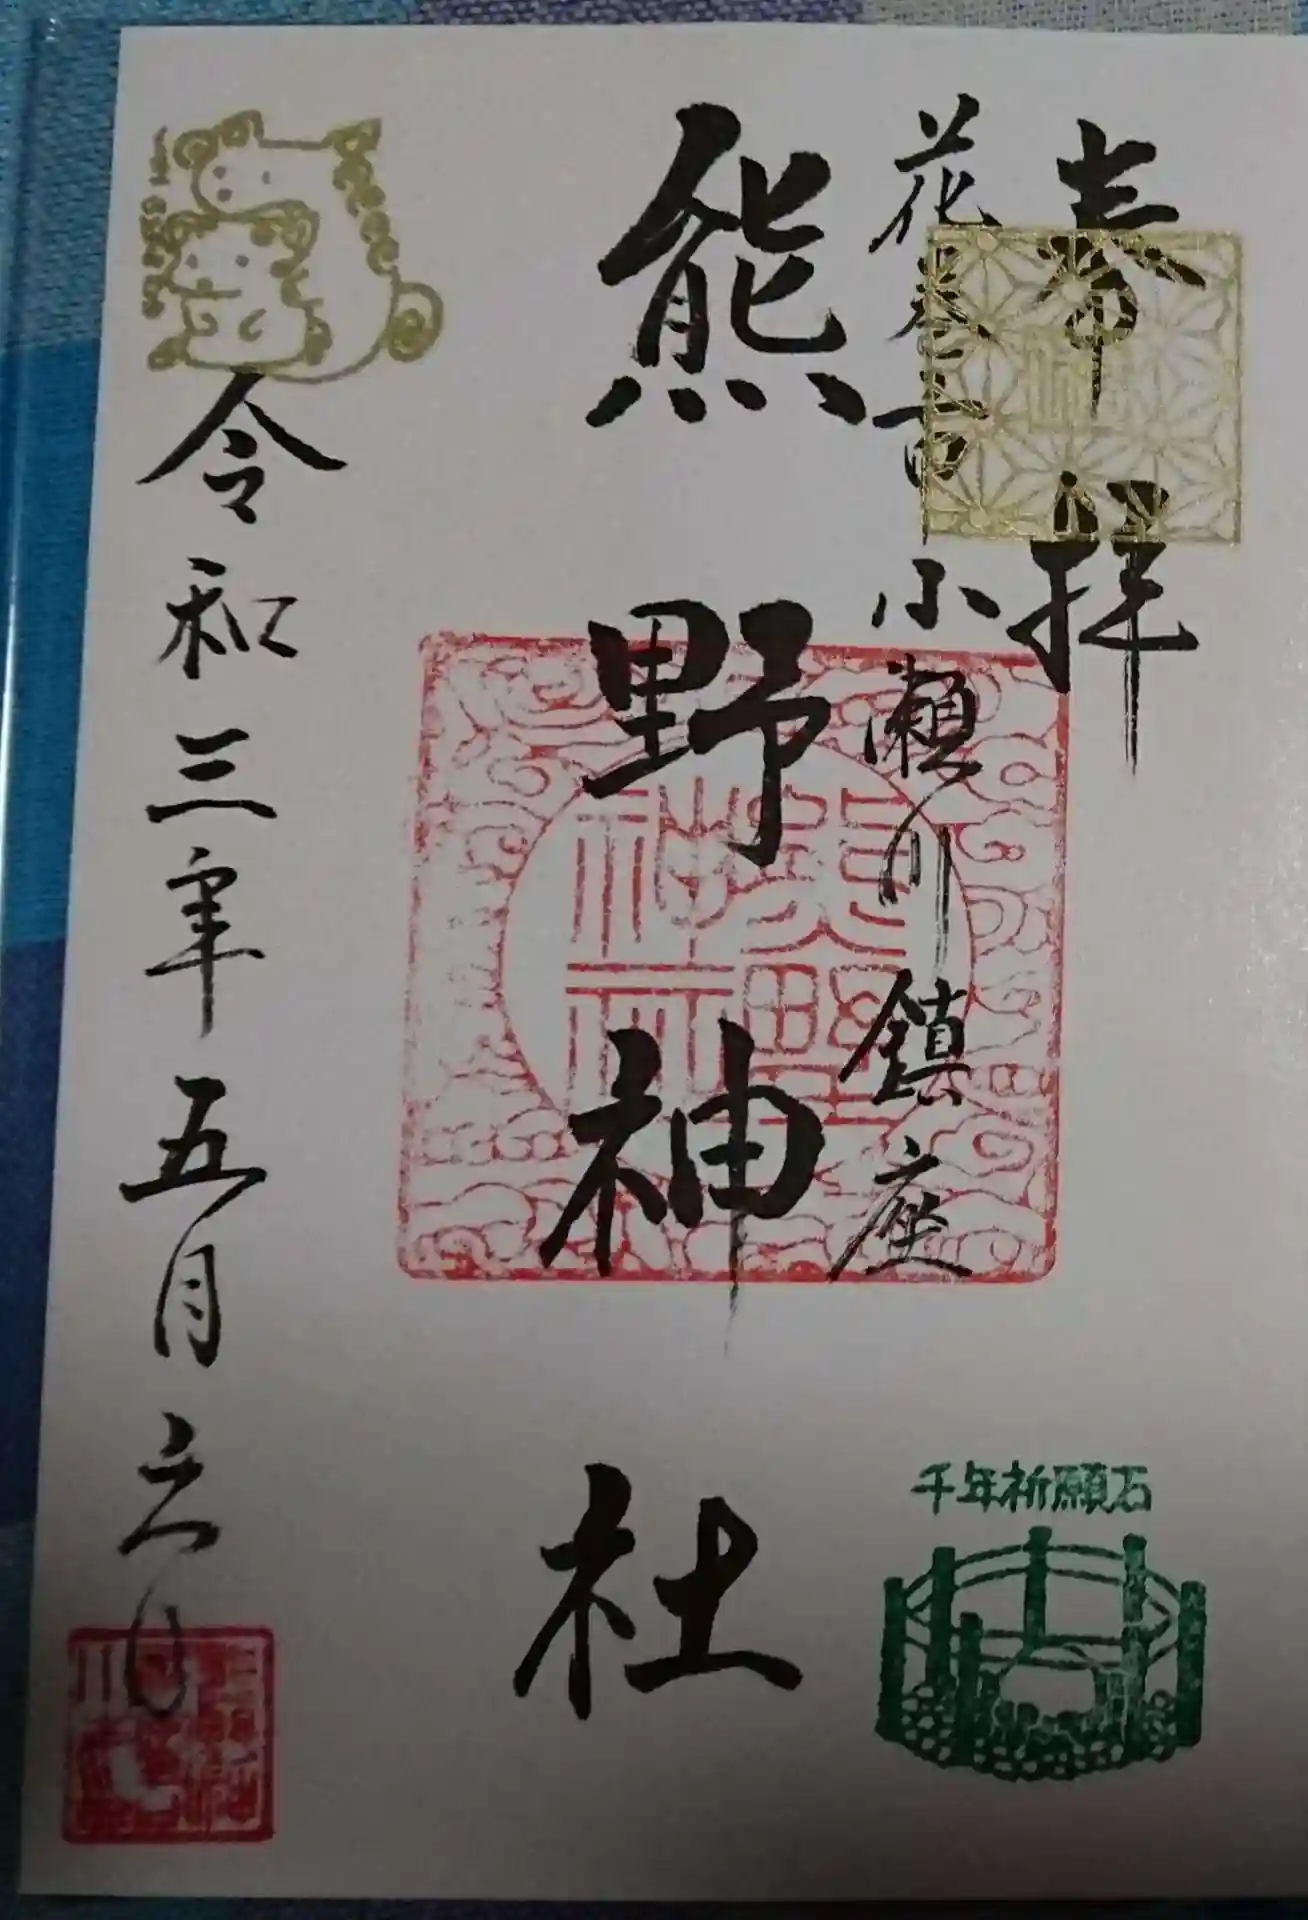 奉拝
花巻市小瀬川鎮座
熊野神社
令和三年五月六日
千年祈願石